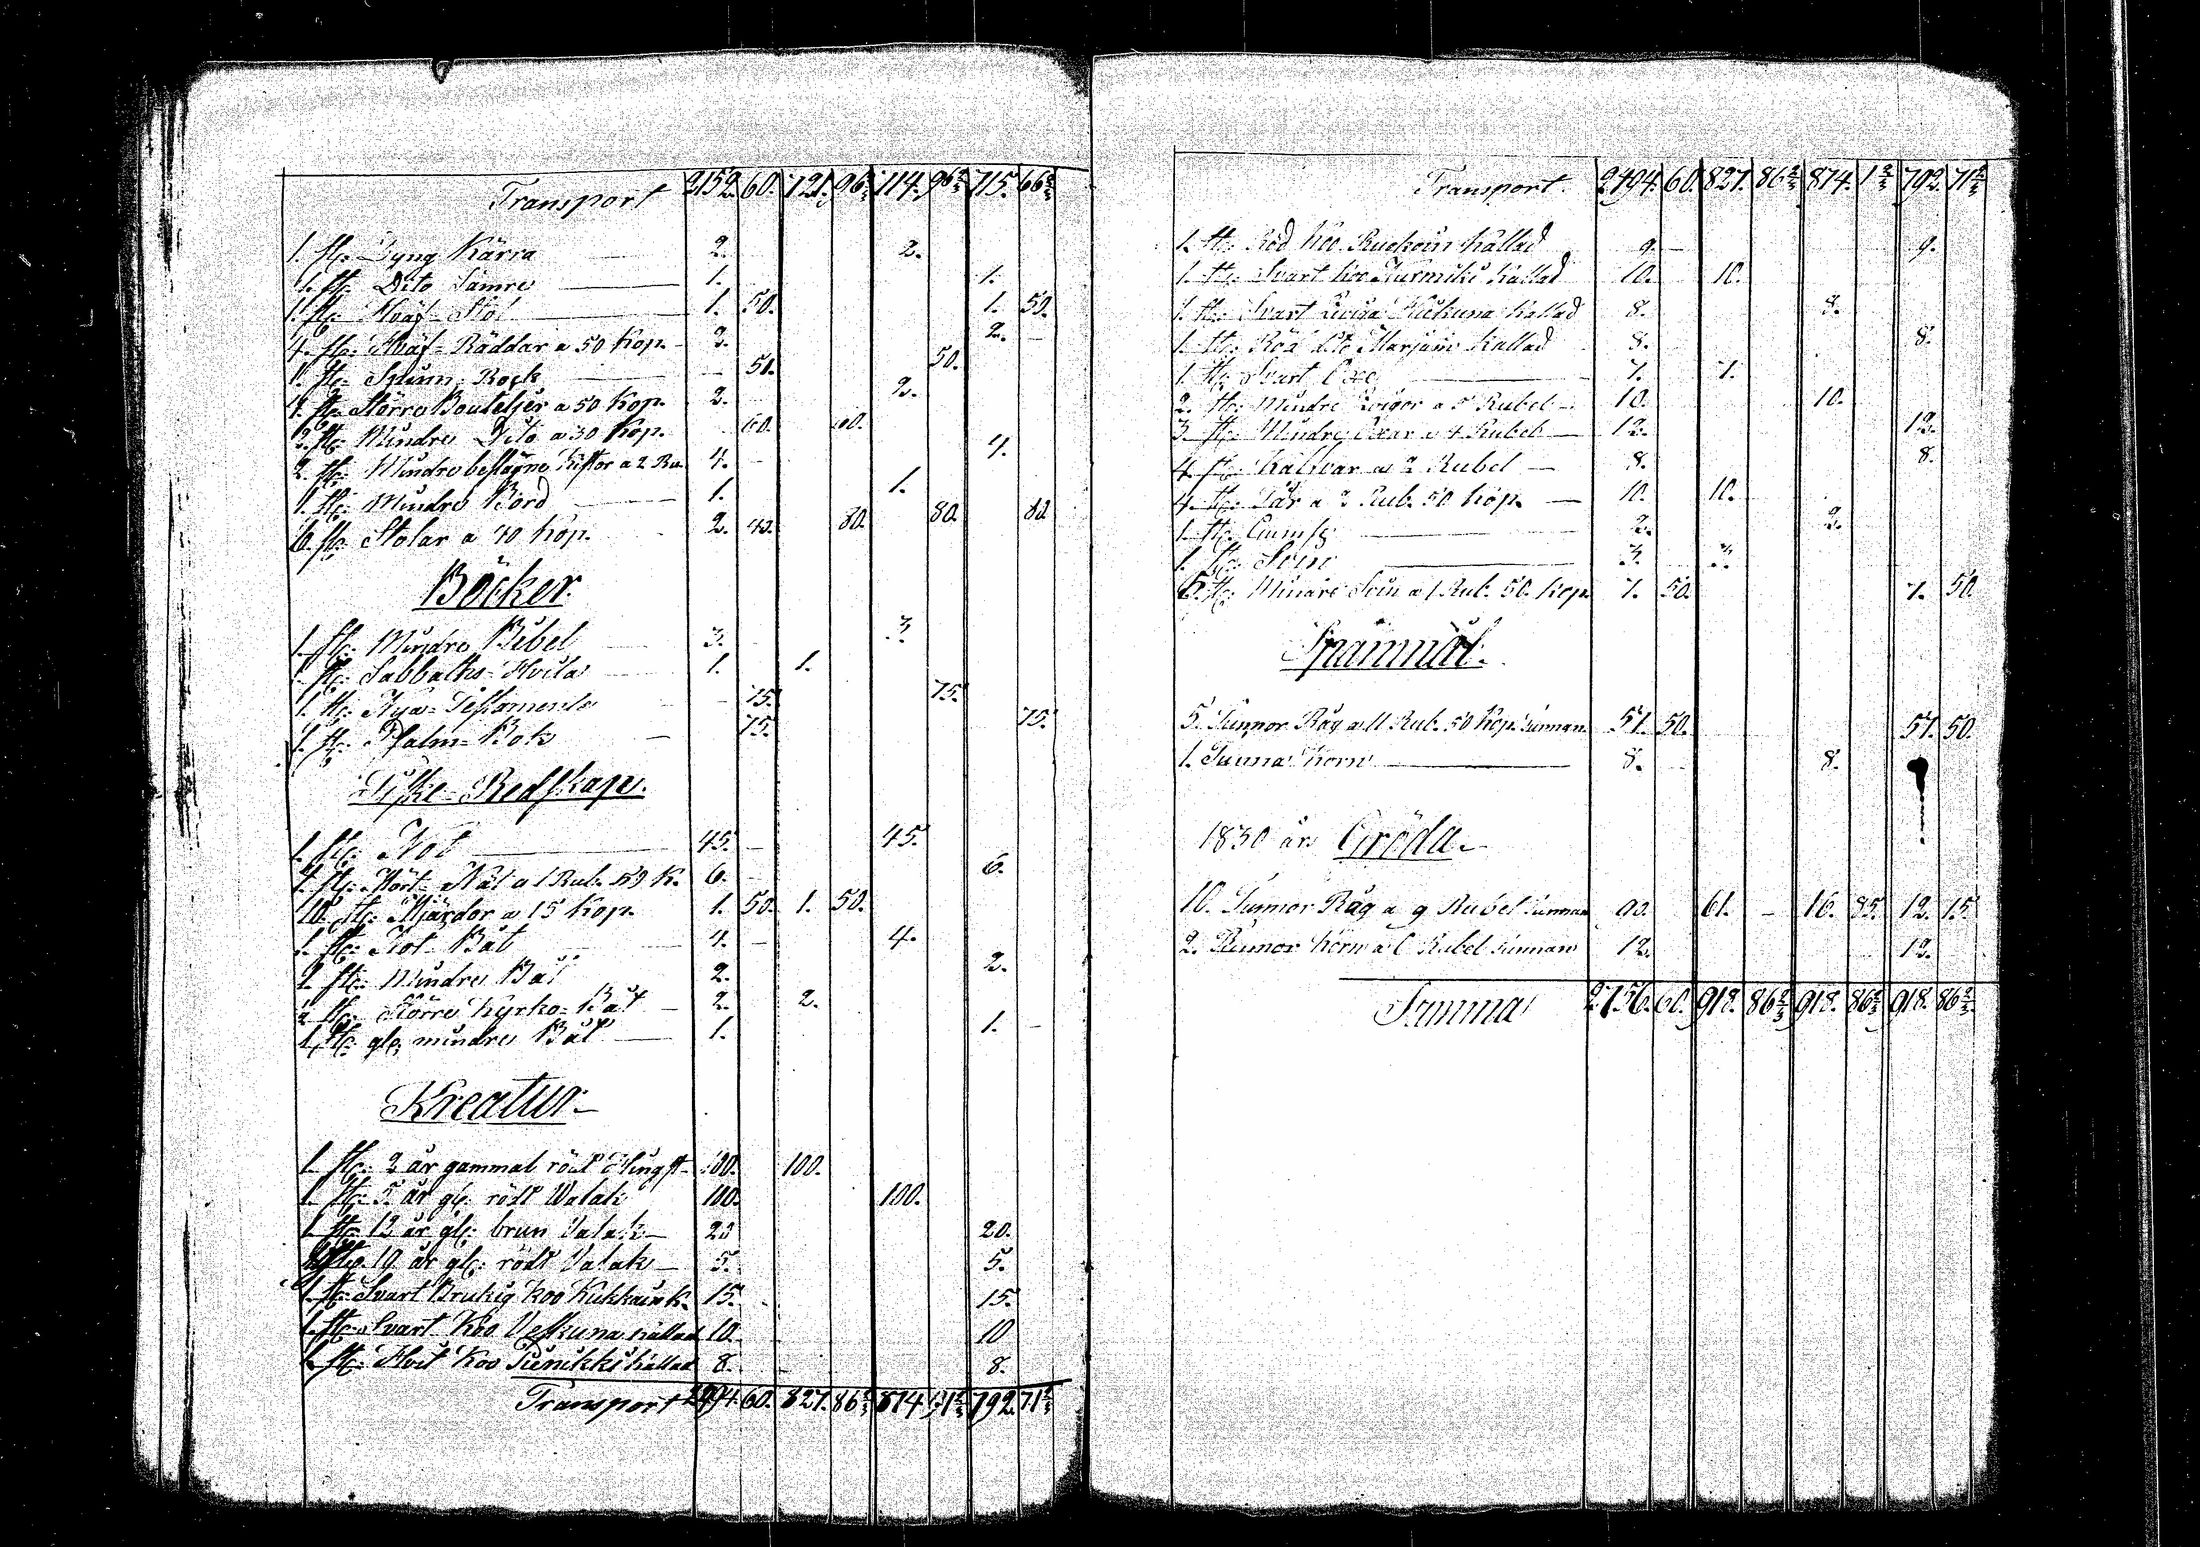 Transport 2152. 60. 721. 96 2/3 714. 96 2/3 715. 66 2/3
1. st: Dyng Kärra 2. 2.
1. st: Dito Sämre 1. 1.
1. st: Hväf-Stol 1. 50. 1. 50.
4. st: Hväf-Räddar a 50 Kop. 2. 2.
1. st: Spinn-Rock 50. 50.
4. st: Större Bouteljer a 50 Kop. 2. 2.
2. st: Mindre Dito a 30 Kop. 60. 60.
2. st: Mindre beslagne Kistor a 2 Ru. 4. 4.
1. st: Mindre Bord 1. 1.
6. st: Stolar a 40 Kop. 2. 40. 80. 80. 80
Böcker
1. st: Mindre Bibel 3. 3.
1. st: Sabbaths-Hvila 1. 1.
1. st: Nya-Testamente 75. 75.
1. st: Psalm-Bok 75. 75.
Fiske-Redskap.
1. st: Not 45. 45.
4. st: Mört-Nät a 1 Rub. 50 K. 6. 6.
10. st: Mjärdor a 15 Kop. 1. 50. 1. 50.
1. st: Not-Båt 4. 4.
1. st: Mindre Båt 2. 2.
st: Större Kyrko-Båt 2. 2.
1. st: gl: mindre Båt 1. 1.
Kreatur
1. st: 2 år gammal röd Hingst 100. 100.
1. st: 5 år gl: rödt Walak 100. 100.
1. st: 12 år gl: brun Valak 20 20.
st: 19 år gl: rödt Valak 5. 5.
1. st: Svart Brukig Koo Kukkain k. 15. 15.
1. st: Svart Koo Veskuna kallad 10. 10
1. st: Hvit Koo Punikki kallad 8. 8.
Transport 2494. 60. 827. 86 2/3 874. 1 2/3 792. 71 2/3
Transport. 2494. 60. 827. 86 2/3 874. 1 2/3 792. 71 2/3
1. st: Röd Koo Ruskoin kallad 9. 9.
1. st: Svart Koo Kurmiki kallad 10. 10.
1. st: Svart Qviga Kickuna kallad 8. 8.
1. st: Röd dito Marjain kallad 8. 8.
1. st: Svart Oxe 7. 7.
2. st: Mindre Qvigor a 5 Rubel 10. 10.
3. st: Mindre Oxar a 4 Rubel 12. 12.
4. st: Kalfvar a 2 Rubel 8. 8.
4. st: Får a 2 Rub. 50 Kop. 10. 10.
1. st: Gumse 2. 2.
1. st: Svin 3. 3.
5. st: Mindre Svin a 1 Rub. 50. Kop. 7. 50. 7. 50
Spanmål.
5. Tunnor Råg a 11 Rub. 50 Kop. tunnan 57. 50. 57. 50.
1. Tunna Korn 8. 8.
1830 års Gröda.
10. Tunnor Råg a 9 Rubel tunnan 90. 61. 16. 85. 12. 15.
2. Tunnor Korn a 6 Rubel tunnan 12. 12.
Summa 2756. 60. 918. 86 2/3 918. 86 2/3 918. 86 2/3